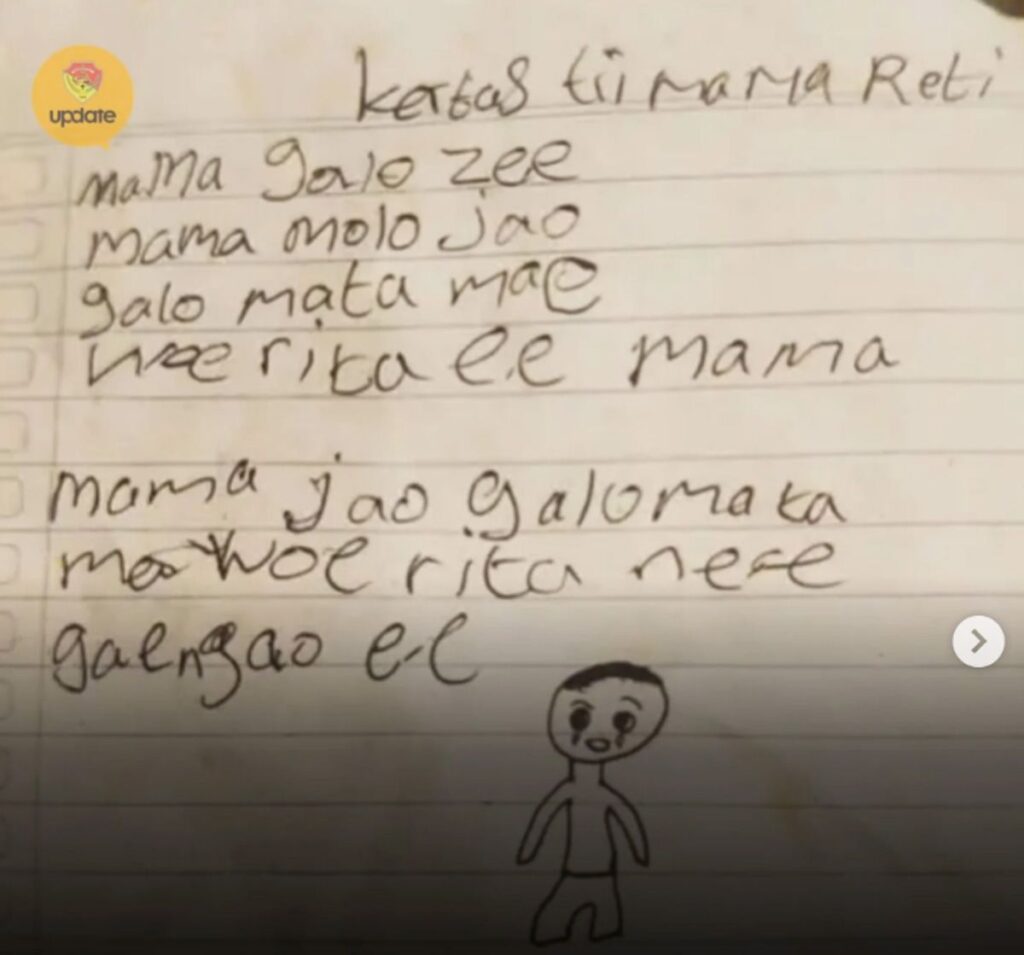 update
kertas tii mama Reti
mama galo zee
mama molo jao
galo mata mae
woe rita ee mama
mama jao galo mata
mae woe rita nee
gae ngao ee